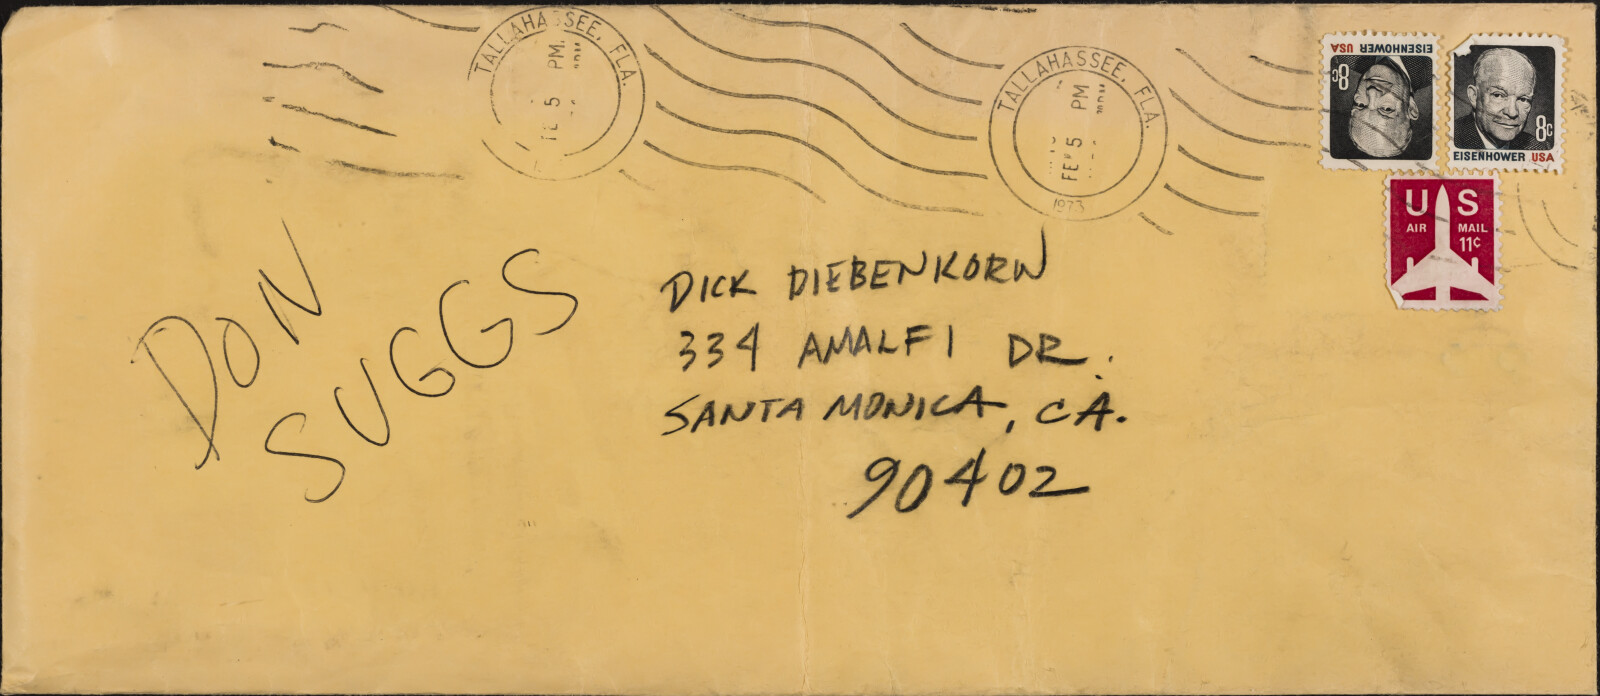 TALLAHASSEE, FLA.
PM
FE 5
TALLAHASSEE, FLA.
PM
FE 5
1973
EISENHOWER USA
8c
8c
EISENHOWER USA
US
AIR MAIL
11¢
DON
SUGGS
DICK DIEBENKORN
334 AMALFI DR.
SANTA MONICA, CA.
90402